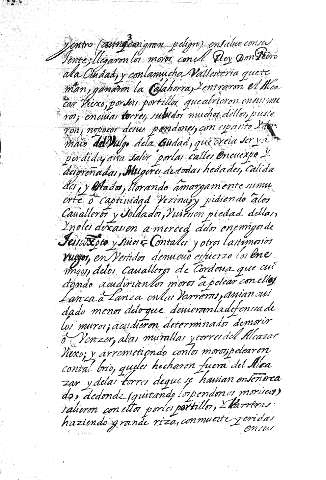 y entro (aunque con gran peligro) en salue con su
gente; llegaron los moros con el Rey Don Pedro
a la Ciudad, y con la mucha Vallesteria que te
nian, ganaron la Calahorra, y entraron el Alca
zar Viexo, por seis portillos que abrieron en su mu
ro; en cuias torres, subidos muchos dellos, pusie
ron, no pocos de sus pendones, con espanto y des
maio del Vulgo de la Ciudad, que creia ser ya
perdida, era salir por las calles en cuerpo y
desgreñadas, Mugeres de todas hedades, Calida
des, y estados, llorando amargamente su mu
erte o captiuidad vezina, y pidiendo a los
Caualleros y Soldados, tuuiesen piedad dellas,
y no les dexasen a merced de los enemigos de
Jesu Xpto, y suios; Con tales, y otros lastimosos
ruegos, envestidos de nueuo esfuerzo los ene
migos, de los Caualleros de Cordoua que cui
dando acudirian los moros a pelear con ellos
Lanza a Lanza en las Barreras, auian cui
dado menos de lo que deuieron la defensa de
los muros; acudieron determinados de morir
o Venzer, a las murallas y torres del Alcazar
Viexo; y arremetiendo con los moros, pelearon
con tal brio, que les hecharon fuera del Alca
zar y de las torres de que se hauian enseñorea
do, de donde (quitando los pendones moriscos)
salieron con ellos por los portillos, y Barreras
haziendo grande riza, con muerte y eridas